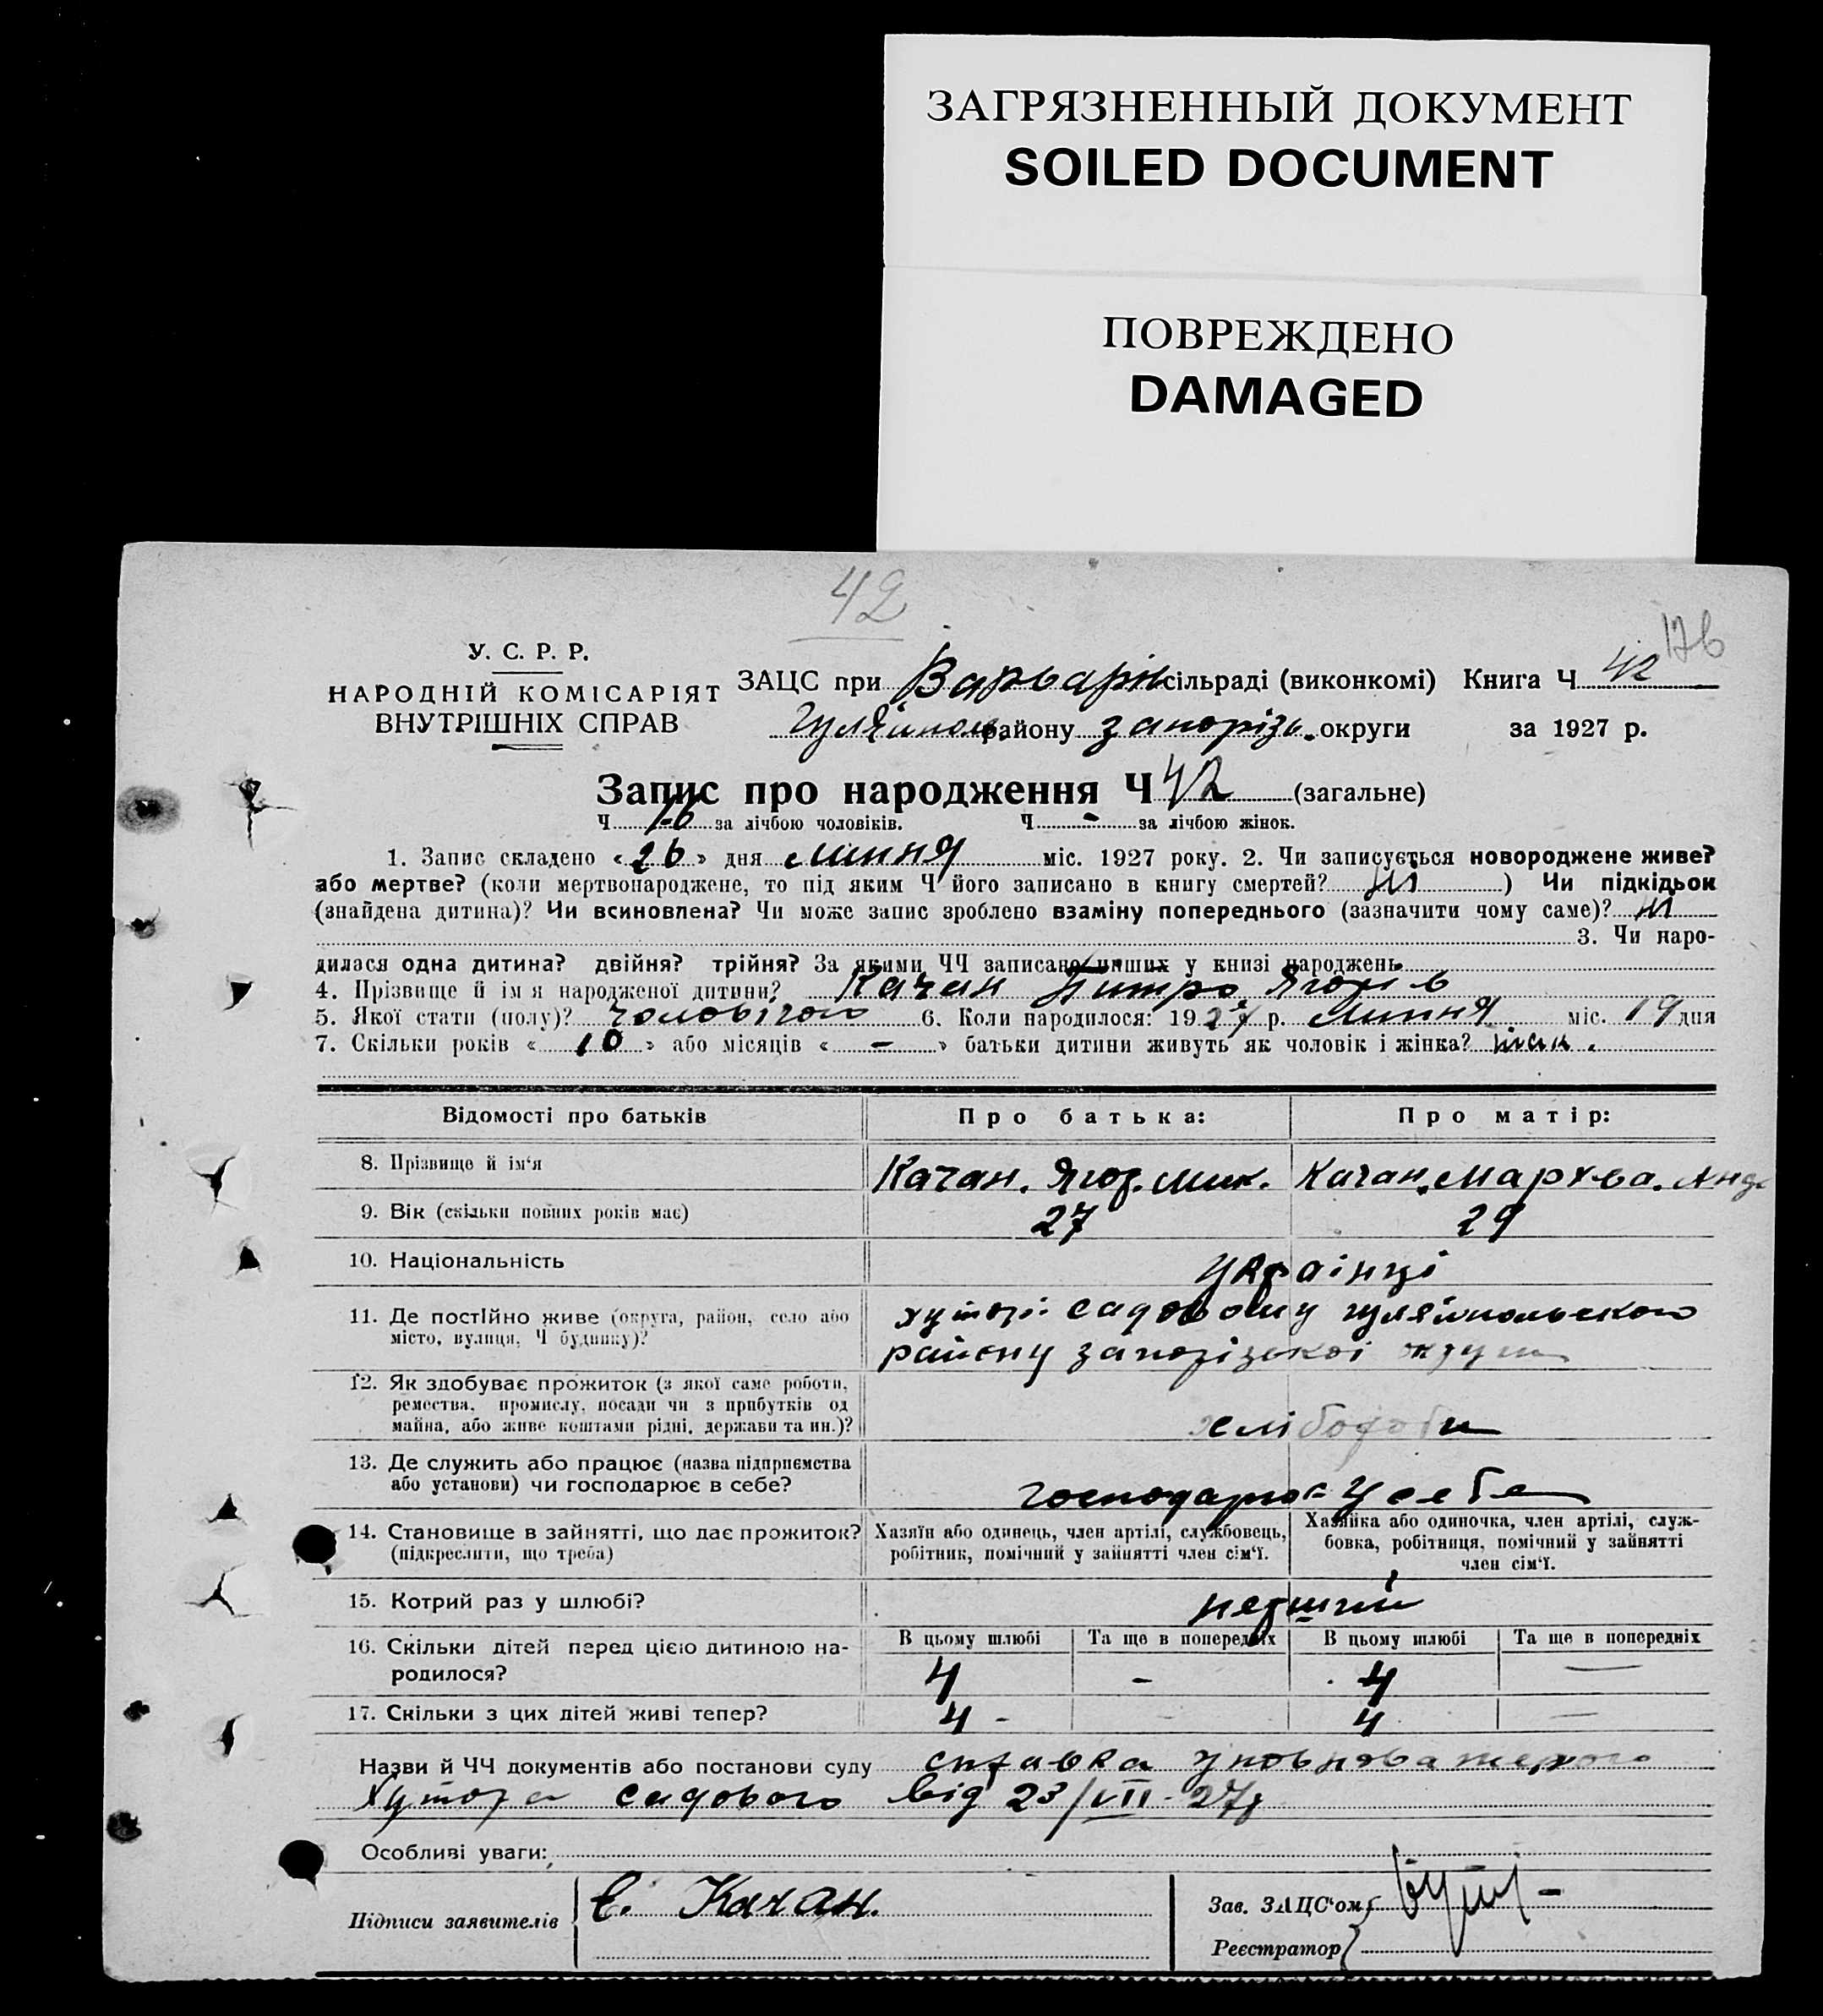 ЗАГРЯЗНЕННЫЙ ДОКУМЕНТ
SOILED DOCUMENT
ПОВРЕЖДЕНО
DAMAGED
42
176
У. С. Р. Р.
НАРОДНІЙ КОМІСАРІЯТ
ВНУТРІШНІХ СПРАВ
ЗАЦС при Варварів сільраді (виконкомі) Книга Ч 42
Гуляйполь району запорізь. округи за 1927 р.
Запис про народження Ч 42 (загальне)
Ч 16 за лічбою чоловіків. Ч - за лічбою жінок.
1. Запис складено « 26 » дня липня міс. 1927 року. 2. Чи записується новороджене живе?
або мертве? (коли мертвонароджене, то під яким Ч його записано в книгу смертей? ні ) Чи підкідьок
(знайдена дитина)? Чи всиновлена? Чи може запис зроблено взаміну попереднього (зазначити чому саме)? ні
3. Чи наро-
дилася одна дитина? двійня? трійня? За якими ЧЧ записано инших у книзі народжень
4. Прізвище й ім я народженої дитини? Качан Питро Ягорів
5. Якої стати (полу)? чоловічого 6. Коли народилося: 1927 р. липня міс. 19 дня
7. Скільки років « 10 » або місяців « - » батьки дитини живуть як чоловік і жінка? так.
Відомості про батьків
Про батька:
Про матір:
8. Прізвище й ім‘я
Качан. Ягор. Мик.
Качан. Мархва. Анд
9. Вік (скільки повних років має)
27
29
10. Національність
Українці
11. Де постійно живе (округа, район, село або
місто, вулиця, Ч будинку)?
хуторі садовому гуляйпольского
району запорізської округи
12. Як здобуває прожиток (з якої саме роботи,
ремества, промислу, посади чи з прибутків од
майна, або живе коштами рідні, держави та ин.)?
хлібороби
13. Де служить або працює (назва підприємства
або установи) чи господарює в себе?
господарює у себе
14. Становище в зайнятті, що дає прожиток?
(підкреслити, що треба)
Хазяїн або одинець, член артілі, службовець,
робітник, помічний у зайнятті член сім‘ї.
Хазяйка або одиночка, член артілі, служ-
бовка, робітниця, помічний у зайнятті
член сім‘ї.
15. Котрий раз у шлюбі?
перший
16. Скільки дітей перед цією дитиною на-
родилося?
В цьому шлюбі
Та ще в попередніх
В цьому шлюбі
Та ще в попередніх
4 - 4 —
17. Скільки з цих дітей живі тепер?
4 - 4 —
Назви й ЧЧ документів або постанови суду справка уповноваженого
Хутора садового від 23/VII-27р
Особливі уваги:
Підписи заявителів
Є. Качан.
Зав. ЗАЦС‘ом
Реєстратор